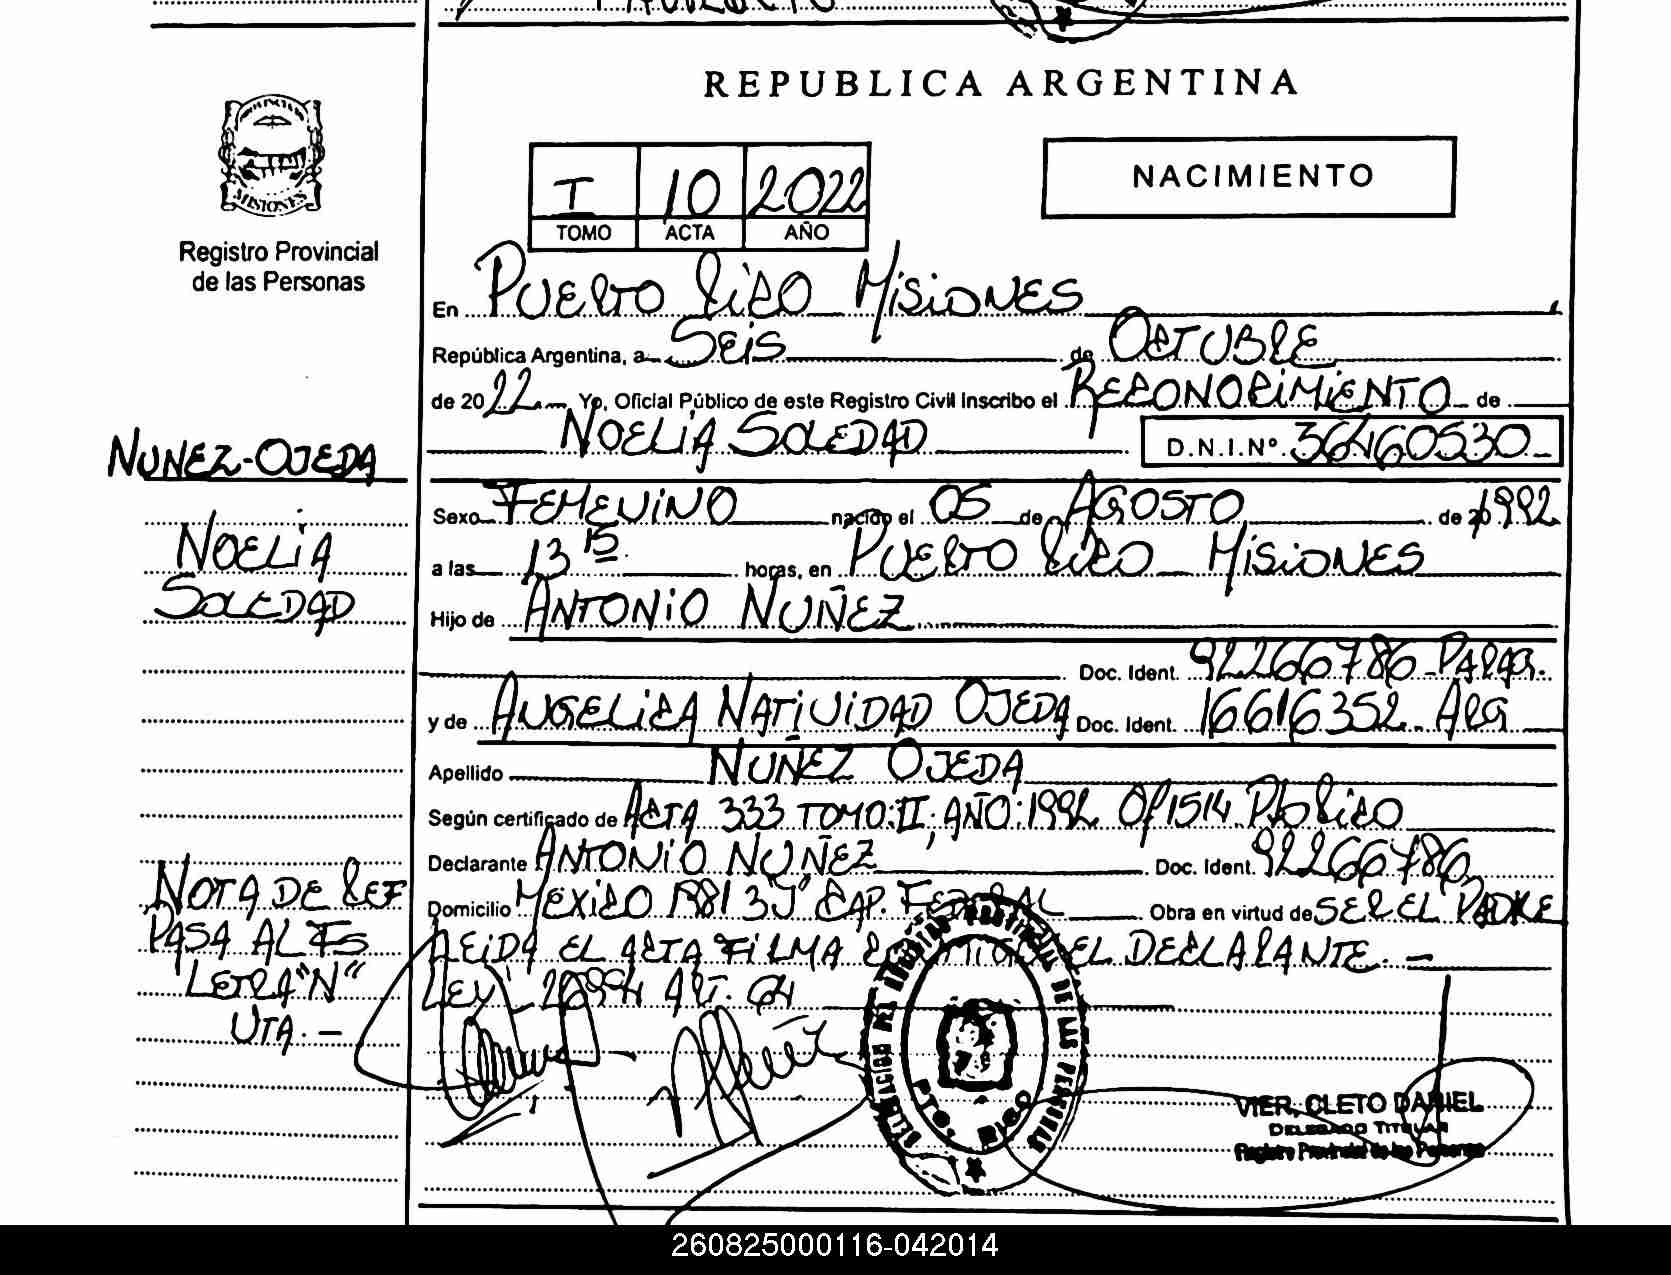 REPUBLICA ARGENTINA
MISIONES
Registro Provincial
de las Personas
I 10 2022
TOMO ACTA AÑO
NACIMIENTO
En PUERTO RICO MISIONES
República Argentina, a SEIS de OCTUBRE
de 2022 Yo, Oficial Público de este Registro Civil Inscribo el RECONOCIMIENTO de
NOELIA SOLEDAD D.N.I.Nº. 36460530_
NUNEZ-OJEDA
NOELIA
SOLEDAD
Sexo FEMENINO nacido el 05 de AGOSTO de 1992
a las 13 15 horas, en PUERTO RICO - MISIONES
Hijo de ANTONIO NUÑEZ
Doc. Ident. 92266786 - PARAG.
y de ANGELICA NATIVIDAD OJEDA Doc. Ident. 16616352 - ARG
Apellido NUNEZ OJEDA
Según certificado de ACTA 333 TOMO:II; AÑO:1992 Of 1514 Pto RICO
Declarante ANTONIO NUÑEZ Doc. Ident. 92266786
Domicilio MEXICO 1381 3J° CAP. FEDERAL Obra en virtud de SER EL PADRE
LEIDA EL ACTA FILMA EL DECLARANTE. -
LEY 26994 ART. 64
NOTA DE REF
PASA AL FS
LETRA "N"
UTA. -
DELEGACION DEL REGISTRO PROVINCIAL DE LAS PERSONAS
PTO. RICO
VIER, CLETO DANIEL
DELEGADO TITULAR
Registro Provincial de las Personas
260825000116-042014